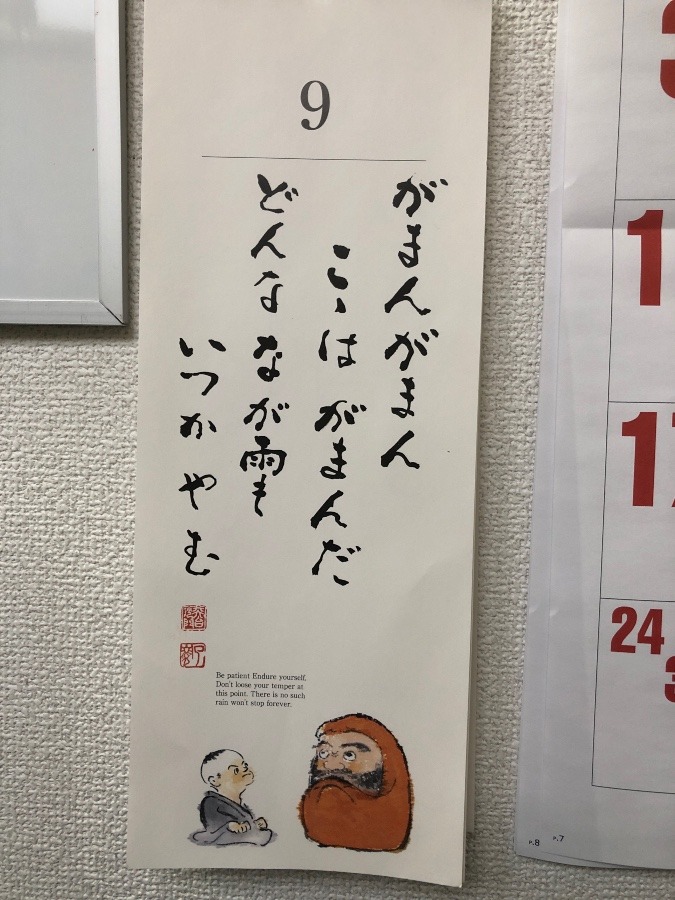 9
がまんがまん
こゝは がまんだ
どんな なが雨も
いつか やむ
Be patient Endure yourself.
Don't loose your temper at
this point. There is no such
rain won't stop forever.
1
17
24
P.8 P.7